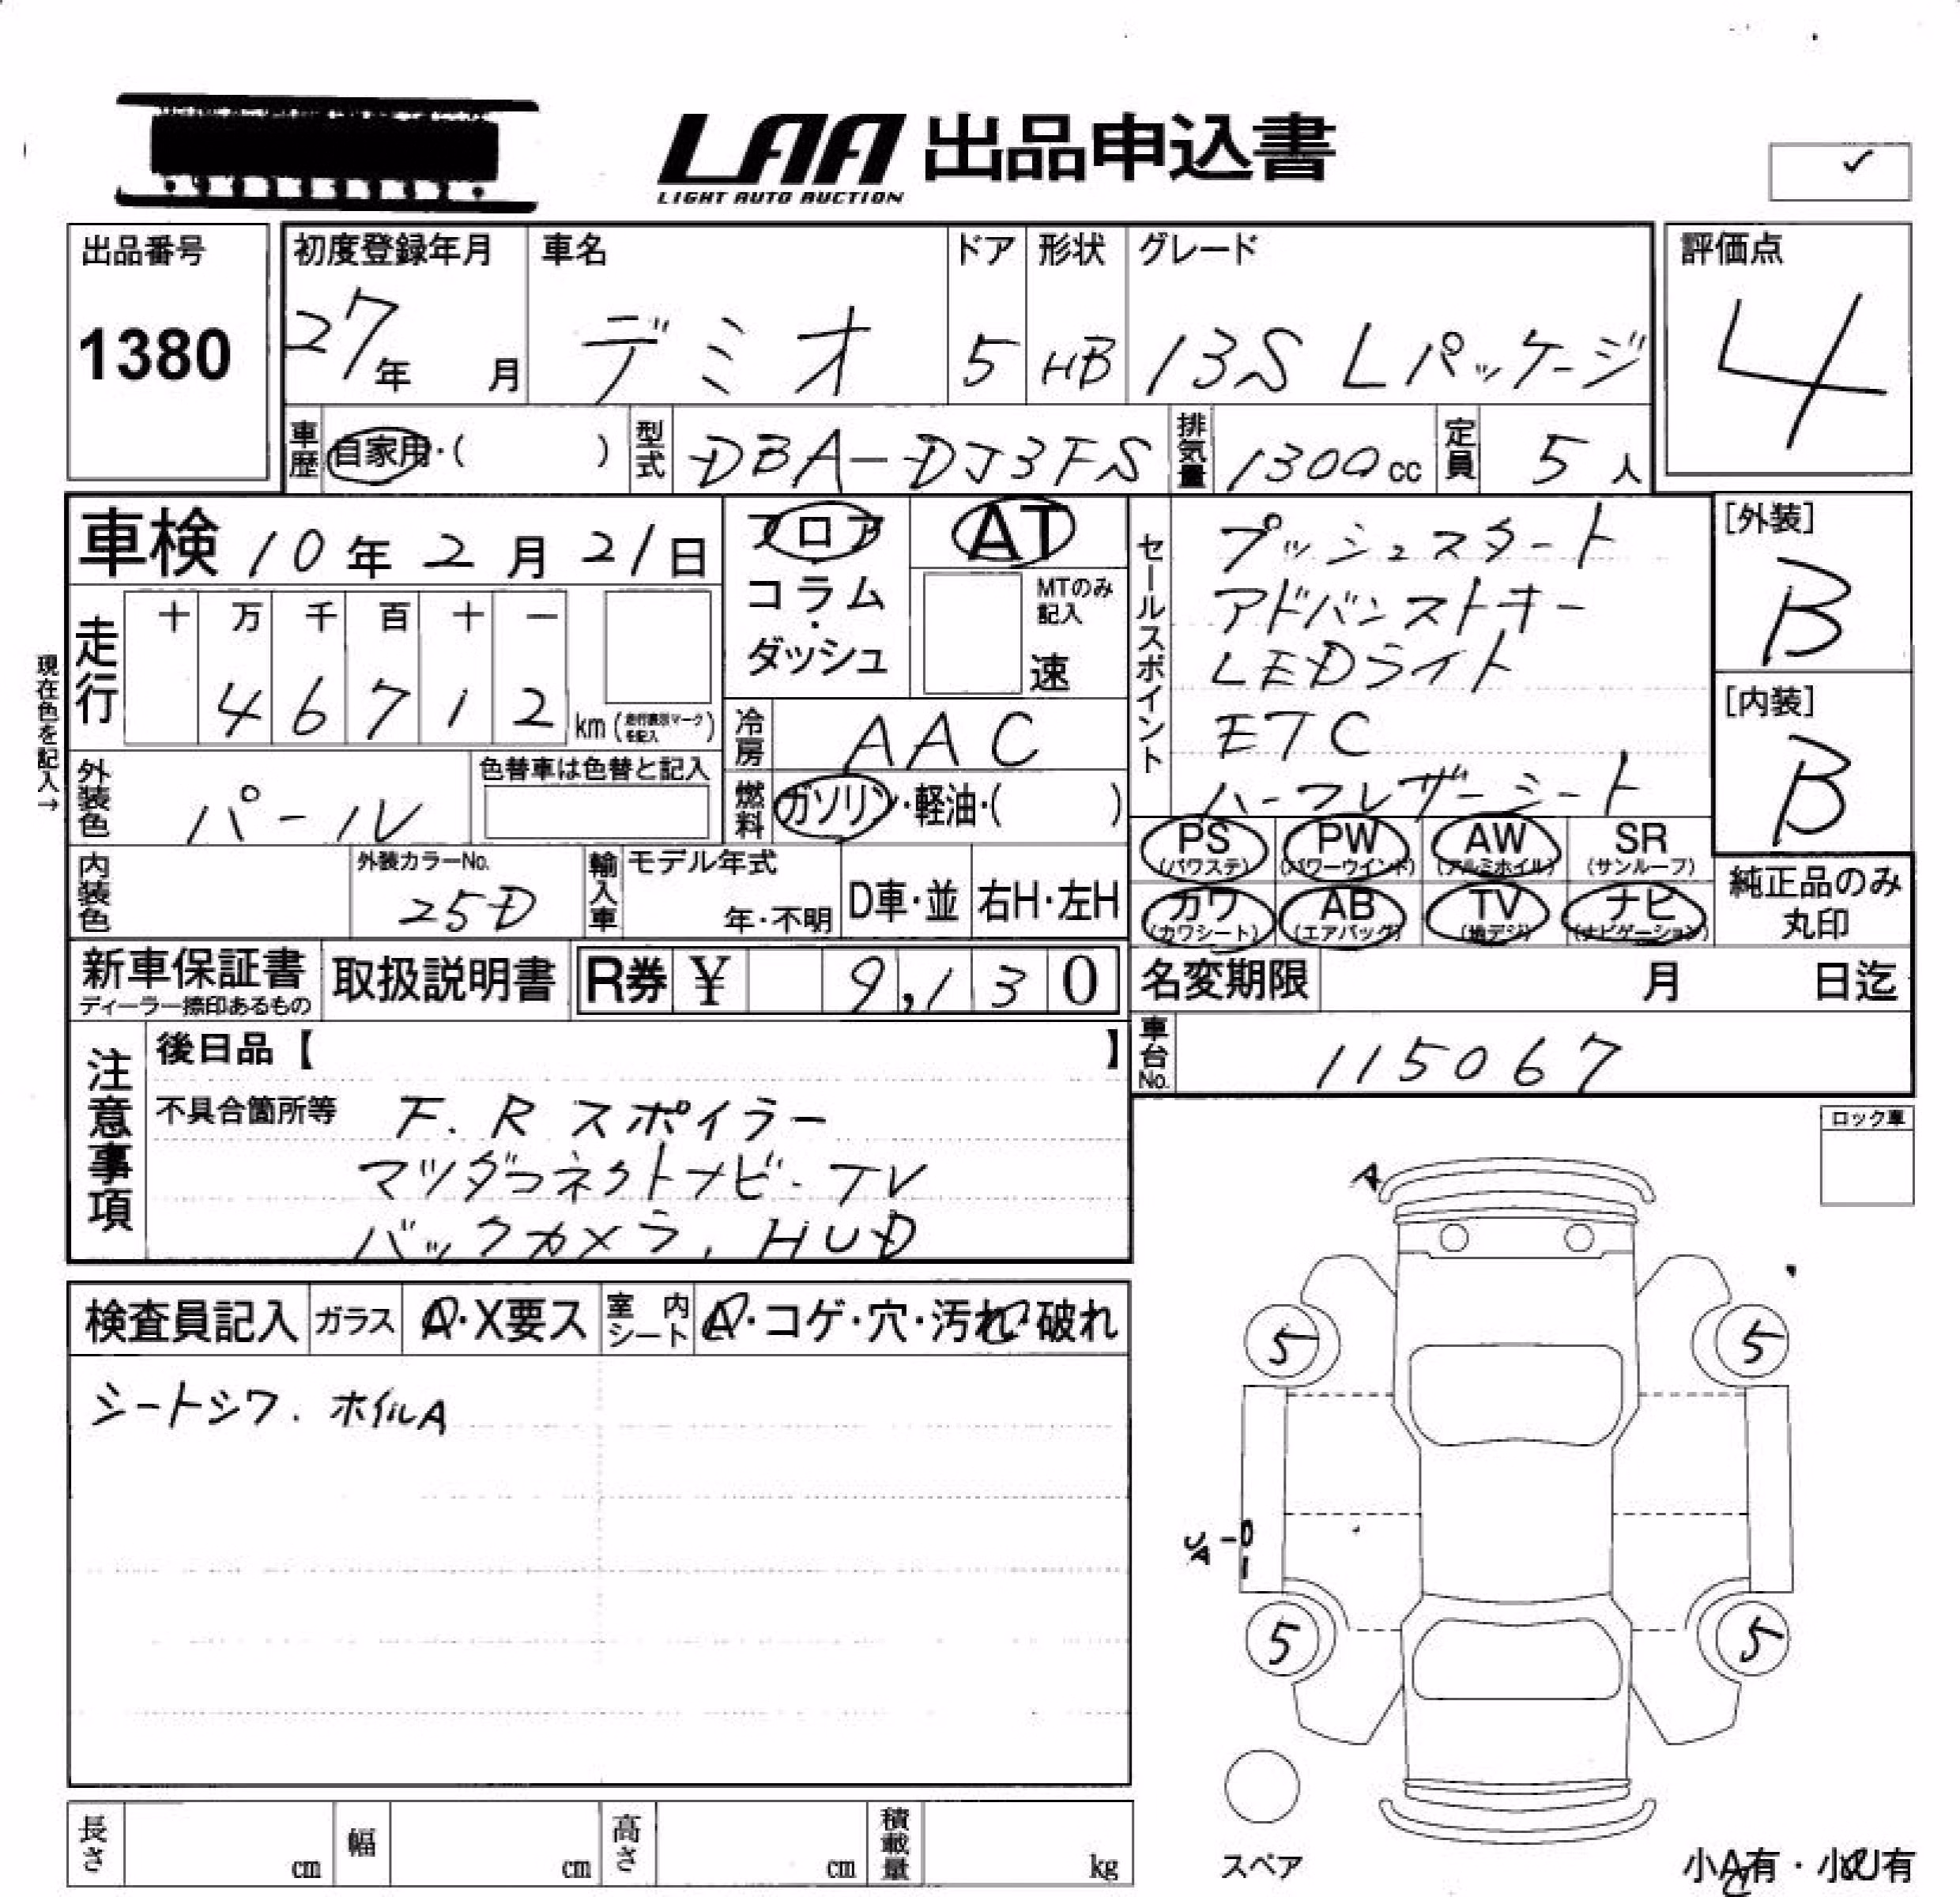 LAA 出品申込書
LIGHT AUTO AUCTION
出品番号 1380
初度登録年月 27年 月
車名 デミオ
ドア 5
形状 HB
グレード 13S Lパッケージ
評価点 4
車歴 自家用・( )
型式 DBA-DJ3FS
排気量 1300cc
定員 5人
車検 10年2月21日
フロア コラム・ダッシュ
AT
MTのみ記入 速
セールスポイント
プッシュスタート
アドバンストキー
LEDライト
ETC
ハーフレザーシート
[外装] B
[内装] B
現在色を記入→
走行 十 万 千 百 十 一
4 6 7 1 2 km (走行表示マークを記入)
冷房 AAC
外装色 パール
色替車は色替と記入
燃料 ガソリン・軽油・( )
PS (パワステ) PW (パワーウインド) AW (アルミホイル) SR (サンルーフ)
カワ (カワシート) AB (エアバッグ) TV (地デジ) ナビ (ナビゲーション)
純正品のみ丸印
内装色
外装カラーNo. 25D
輸入車 モデル年式 年・不明 D車・並 右H・左H
新車保証書 ディーラー捺印あるもの
取扱説明書
R券 ¥ 9,130
名変期限 月 日迄
車台No. 115067
注意事項
後日品【 】
不具合箇所等 F.Rスポイラー
マツダコネクトナビ-TV
バックカメラ, HUD
ロック車
A
検査員記入 ガラス A・X要ス 室内シート A・コゲ・穴・汚れ・破れ
シートシワ. ホイルA
5 5
5 5
スペア
長さ cm 幅 cm 高さ cm 積載量 kg
小A有・小U有